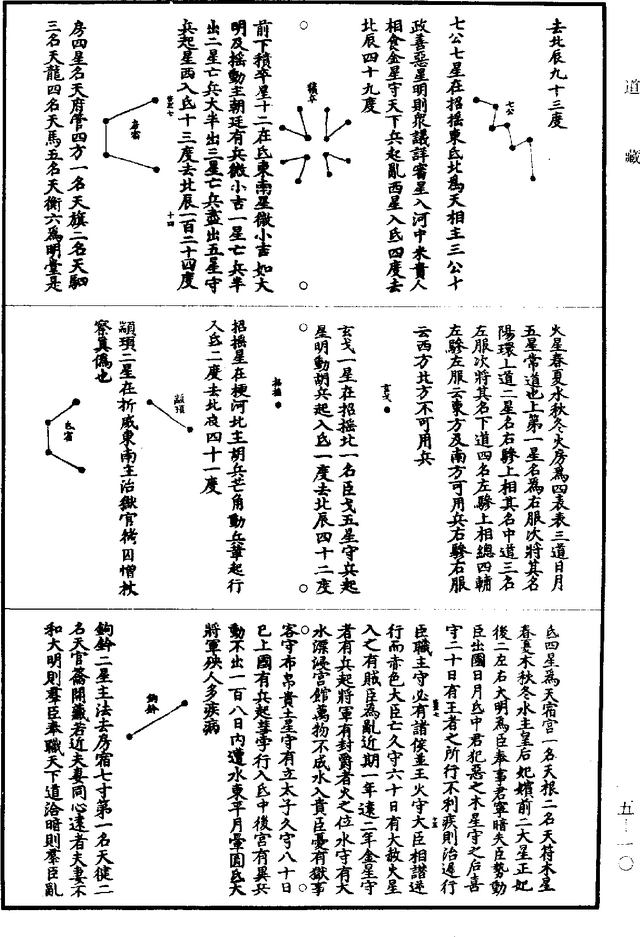 道藏
去北辰九十三度
七公
七公七星在招搖東氐北爲天相主三公十
政善惡星明則衆議詳審星入河中米貴人
相食金星守天下兵起亂西星入氐四度去
北辰四十九度
積卒
前下積卒星十二在氐東南星微小吉如大
明及搖動主朝廷有兵微小吉一星亡兵半
出二星亡兵大半出三星亡兵盡出五星守
兵起星西入氐十三度去北辰一百二十四度
十四
房宿
房四星名天府管四方一名天旗二名天駟
三名天龍四名天馬五名天衡六爲明堂是
火星春夏水秋冬火房爲四表表三道日月
五星常道也上第一星名爲右服次將其名
陽環上道二星名右驂上相其名中道三名
左服次將其名下道四名左驂上相總四輔
左驂左服云東方及南方可用兵右驂右服
云西方北方不可用兵
玄戈
玄戈一星在招搖北一名臣戈五星守兵起
星明動胡兵起入氐一度去北辰四十二度
招搖
招搖星在梗河北主胡兵芒角動兵革起行
入氐二度去北辰四十一度
頏頊
頏頊二星在折威東南主治獄官拷囚憎杖
察真僞也
氐宿
氐四星爲天宿宮一名天根二名天符木星
春夏木秋冬水主皇后妃嬪前二大星正妃
後二左右大明爲臣奉事君寧暗失臣勢動
臣出國日月氐中君犯惡之木星守之后喜
守二十日有王者之所行不利疾則治遲行
臣職主守必有諸侯並王火守大臣相譖逆
行而赤色大臣亡久守六十日有大赦火星
入之有賊臣爲亂近期一年遠二年金星守
者有兵起將軍有封爵者火之位水守有大
水漂浸宮館萬物不成水入貴臣憂有獄事
客守布帛貴土星守有立太子久守八十日
已上國有兵起彗孛行入氐中後宮有異兵
動不出一百八日內遭水東平月暈圓氐大
將軍殃人多疾病
鉤鈐
鉤鈐二星主法去房宿七寸第一名天健二
名天官籥開藏若近夫妻同心遠者夫妻不
和大明則羣臣奉職天下道洽暗則羣臣亂
五-一〇